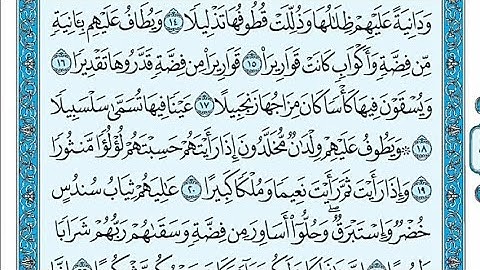 وَدَانِيَةً عَلَيْهِمْ ظِلَٰلُهَا وَذُلِّلَتْ قُطُوفُهَا تَذْلِيلًا ١٤ وَيُطَافُ عَلَيْهِم بِـَٔانِيَةٍ
مِّن فِضَّةٍ وَأَكْوَابٍ كَانَتْ قَوَارِيرَا۠ ١٥ قَوَارِيرَا۟ مِن فِضَّةٍ قَدَّرُوهَا تَقْدِيرًا ١٦
وَيُسْقَوْنَ فِيهَا كَأْسًا كَانَ مِزَاجُهَا زَنجَبِيلًا ١٧ عَيْنًا فِيهَا تُسَمَّىٰ سَلْسَبِيلًا
١٨ ۞ وَيَطُوفُ عَلَيْهِمْ وِلْدَٰنٌ مُّخَلَّدُونَ إِذَا رَأَيْتَهُمْ حَسِبْتَهُمْ لُؤْلُؤًا مَّنثُورًا
١٩ وَإِذَا رَأَيْتَ ثَمَّ رَأَيْتَ نَعِيمًا وَمُلْكًا كَبِيرًا ٢٠ عَٰلِيَهُمْ ثِيَابُ سُندُسٍ
خُضْرٌ وَإِسْتَبْرَقٌ ۖ وَحُلُّوٓا۟ أَسَاوِرَ مِن فِضَّةٍ وَسَقَىٰهُمْ رَبُّهُمْ شَرَابًا